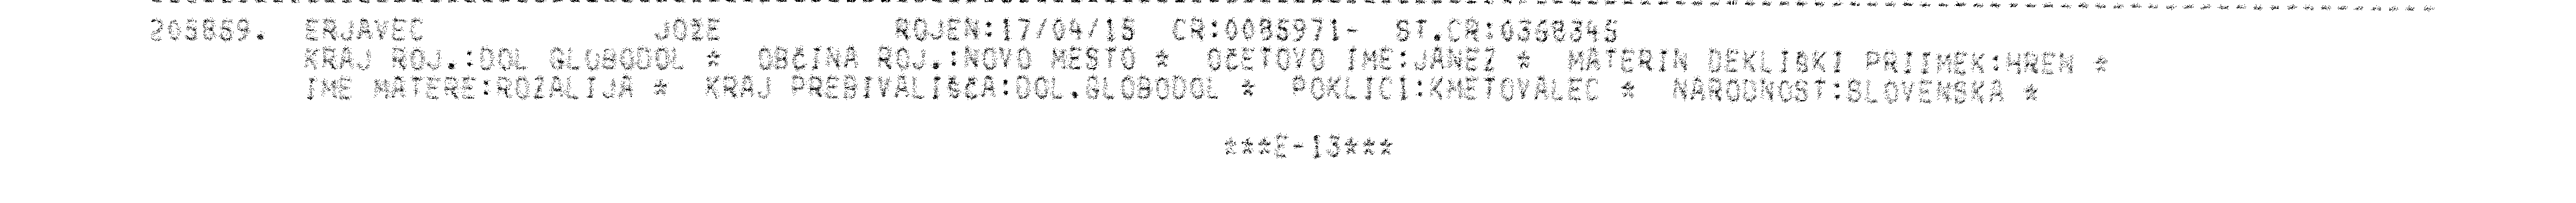 205859. ERJAVEC JOŽE ROJEN:17/04/15 CR:0085971- ST.CR:0368345
KRAJ ROJ.:DOL GLOBODOL * OBČINA ROJ.:NOVO MESTO * OČETOVO IME:JANEZ * MATERIN DEKLIŠKI PRIIMEK:HREN *
IME MATERE:ROZALIJA * KRAJ PREBIVALIŠČA:DOL.GLOBODOL * POKLICI:KMETOVALEC * NARODNOST:SLOVENSKA *
***E-13***